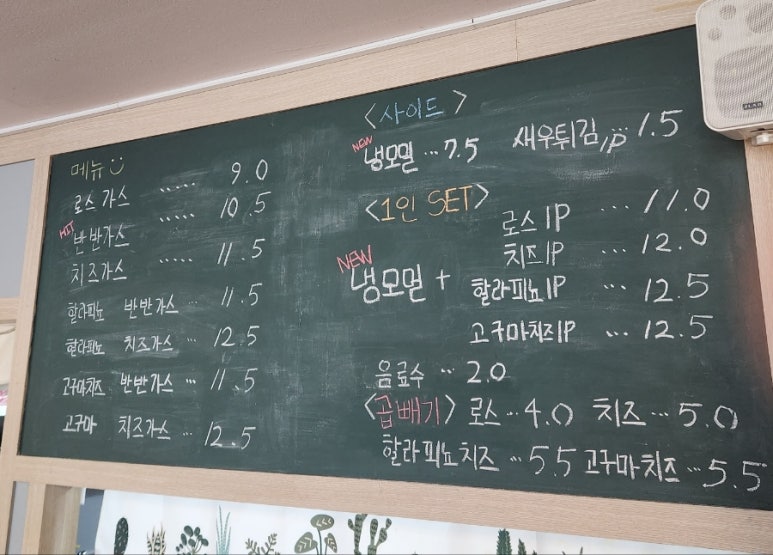 메뉴
로스가스 ..... 9.0
HIT 반반가스 ..... 10.5
치즈가스 ..... 11.5
할라피뇨 반반가스 ... 11.5
할라피뇨 치즈가스 ... 12.5
고구마치즈 반반가스 ... 11.5
고구마 치즈가스 ... 12.5
<사이드>
NEW 냉모밀 ... 7.5 새우튀김 1p ... 1.5
<1인 SET>
NEW 냉모밀 +
로스 1P ... 11.0
치즈 1P ... 12.0
할라피뇨 1P ... 12.5
고구마치즈 1P ... 12.5
음료수 ... 2.0
<곱빼기> 로스 ... 4.0 치즈 ... 5.0
할라피뇨치즈 ... 5.5 고구마치즈 ... 5.5